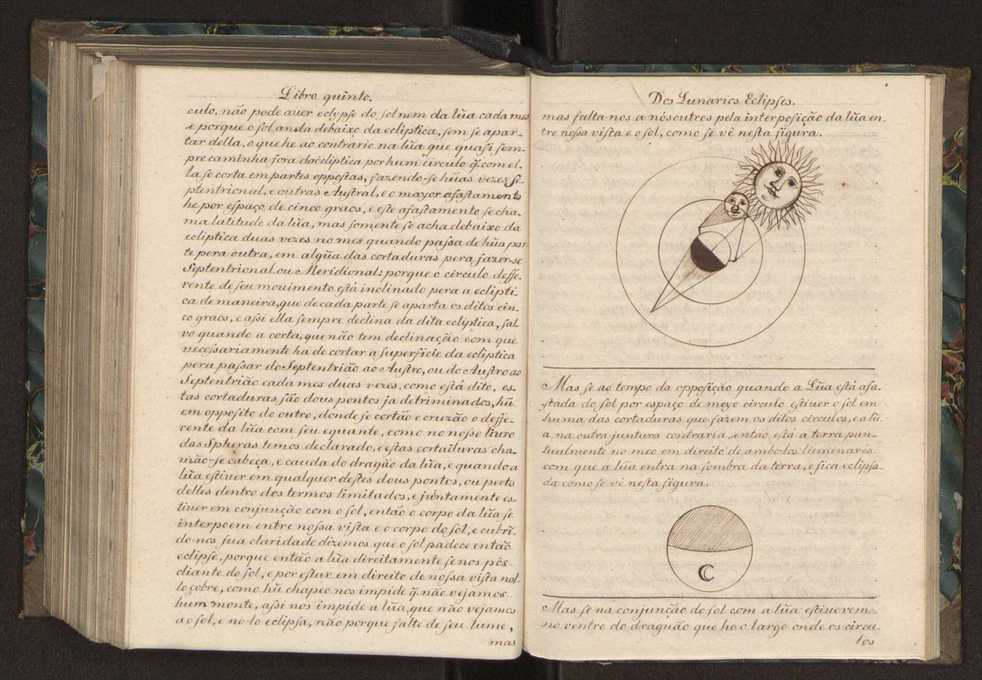 Libro quinto.
culo, não pode auer eclypse do sol nem da lũa cada mes
e porque o sol anda debaixo da ecliptica, sem se apar-
tar della, o que he ao contrario na lũa que quasi sem-
pre caminha fora da ecliptica por hum circulo q̃ com el-
la se corta em partes oppostas, fazendo-se hũas vezes se-
ptentrional, e outras Austral, e o mayor afastamento
he por espaço de cinco graos, e este afastamento se cha-
ma latitude da lũa, mas somente se acha debaixo da
ecliptica duas vezes no mes quando passa de hũa par
te pera outra, em algũa das cortaduras pera fazer-se
Septentrional ou Meridional: porque o circulo deffe-
rente de seu mouimento está inclinado pera a eclipti-
ca de maneira, que de cada parte se aparta os ditos cin-
co graos, e assi ella sempre declina da dita ecliptica, sal
vo quando a corta, que não tem declinação com que
necessariamente ha de cortar a superficie da ecliptica
pera passar do Septentrião ao Austro, ou do Austro ao
Septentrião cada mes duas vezes, como está dito, es-
tas cortaduras são dous pontos ja detriminados, hũ
em opposito do outro, donde se cortão e cruzão o deffe-
rente da lũa com seu equante, como no nosso liuro
das Spheras temos declarado, e estas cortaduras cha-
mão-se cabeça, e cauda do dragão da lũa, e quando a
lũa estiuer em qualquer destes dous pontos, ou perto
delles dentro dos termos limitados, e juntamente es-
tiuer em conjunção com o sol, então o corpo da lũa se
interpoem entre nossa vista e o corpo do sol, e cubrĩ
do-nos sua claridade dizemos que o sol padece então
eclipse, porque então a lũa direitamente se nos põs
diante do sol, e por estar em direito de nossa vista nol
lo cobre, como hũ chapeo nos impide q̃ não vejamos
hum monte, assi nos impide a lũa, que não vejamos
ao sol, e no-lo eclipsa, não porque falte de seu lume,
mas
Dos Lunarios Eclipses.
mas falta-nos a nosoutros pela interposição da lũa en
tre nossa vista e o sol, como se vè nesta figura.
Mas se ao tempo da opposição quando a Lũa está afa-
stada do sol por espaço de meyo circulo estiuer o sol em
huma das cortaduras que fazem os ditos circulos, e a lũ
a na outra juntura contraria, então está a terra pun-
tualmente no meo em direito de ambolos luminares
com que a lũa entra na sombra da terra, e fica eclipsa-
da como se vè nesta figura.
Mas se na conjunção do sol com a lũa estiuerem
no ventre do draguão que he o largo onde os circu-
los